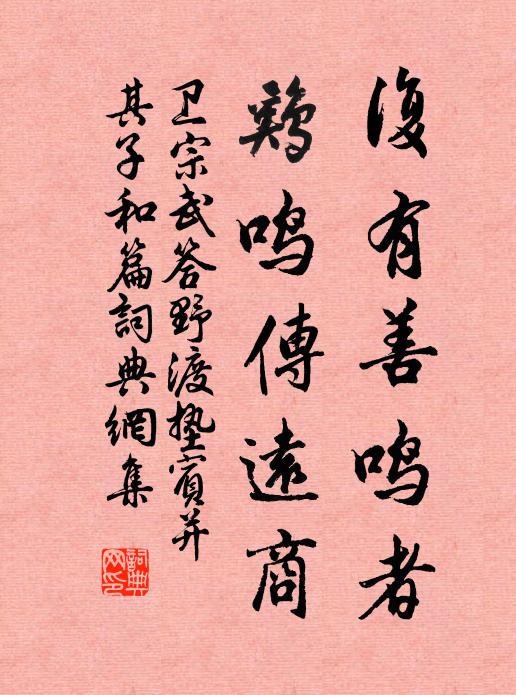 復有善鸣者
鷄鸣傳遠商
卫宗武答野渡垫賓并
其子和篇詞典網集
詞典网印